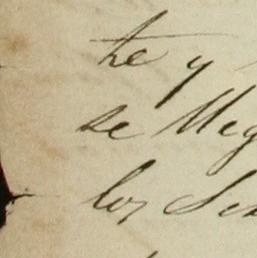 te y
se lleg
los Se